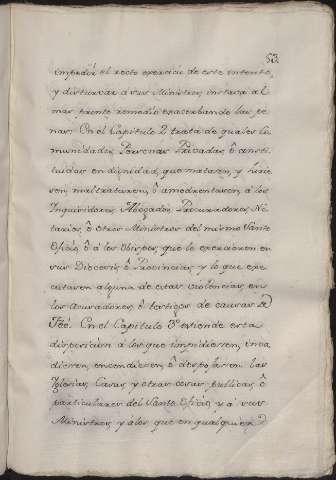 53
impedir el recto exercicio de este intento,
y disturvar á sus Ministros, insta al
mas pronto remedio exacerbando las pe
nas. En el Capitulo 2 trata de quales Co
munidades, Personas Privadas, ó consti
tuidas en dignidad, que mataren, y hirie
ren, maltrataren, ó amedrentaren, á los
Inquisidores, Abogados, Procuradores, No
tarios, ó otros Ministros del mismo Santo
Oficio, ó á los Obispos, que lo exercieren en
sus Diocesis, ó Provincias, y lo que exe
cutaren alguna de estas violencias en
los Acusadores, ó testigos de causas de
Feé. En el Capitulo 3º extiende esta
disposicion á los que impidiesen,
diesen, encendiesen, ó despojasen las
Iglesias, Casas, y otras cosas publicas, ó
particulares del Santo Oficio, y á sus
Ministros, y á los que en qualquiera